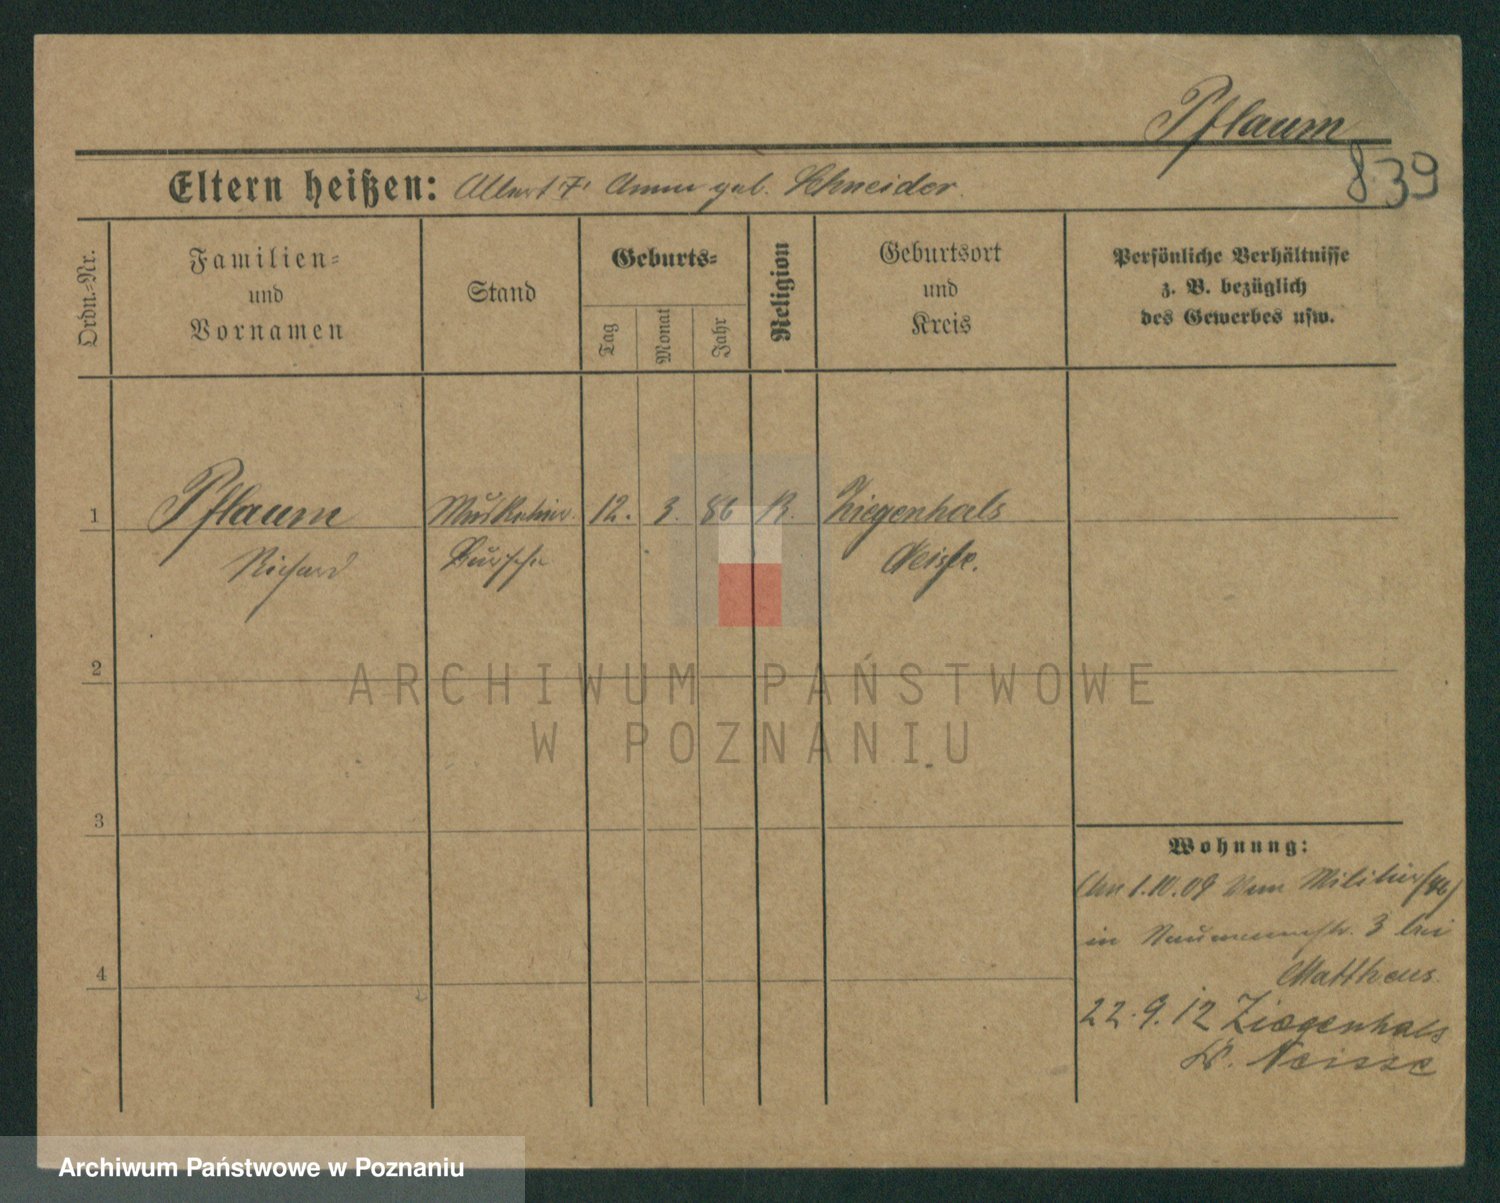 Pflaum
839
Eltern heißen: Albert F. Anna geb. Schneider.
Ordn.-Nr.
Familien-
und
Vornamen
Stand
Geburts-
Tag
Monat
Jahr
Religion
Geburtsort
und
Kreis
Persönliche Verhältnisse
z. B. bezüglich
des Gewerbes usw.
1 Pflaum Musketier 12. 3. 86 Ziegenhals
Richard Bursche Neisse.
2
ARCHIWUM PAŃSTWOWE
W POZNANIU
3
Wohnung:
Am 1.10.09 vom Militär
in Naumannstr. 3 bei
4
Mattheus.
22.9.12 Ziegenhals
Kr. Neisse
Archiwum Państwowe w Poznaniu